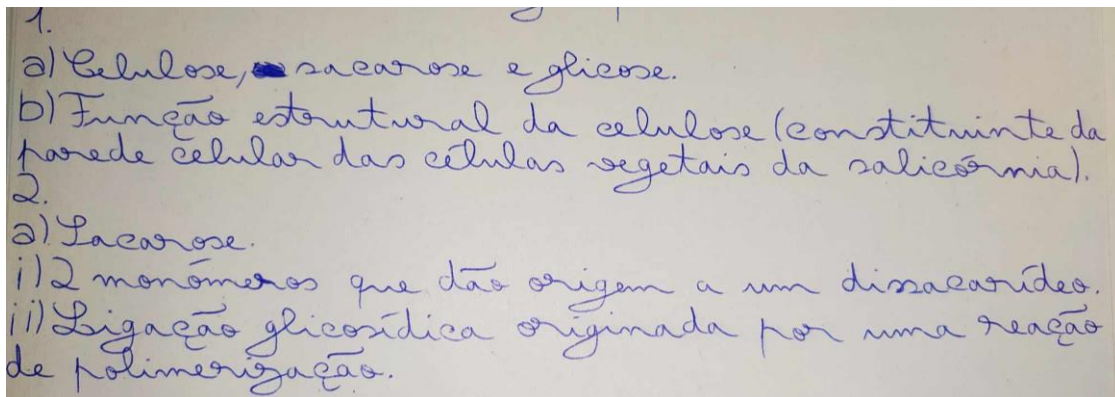 1.
a) Celulose, sacarose e glicose.
b) Função estrutural da celulose (constituinte da
parede celular das células vegetais da salicórnia).
2.
a) Sacarose.
i) 2 monómeros que dão origem a um dissacarídeo.
ii) Ligação glicosídica originada por uma reação
de polimerização.